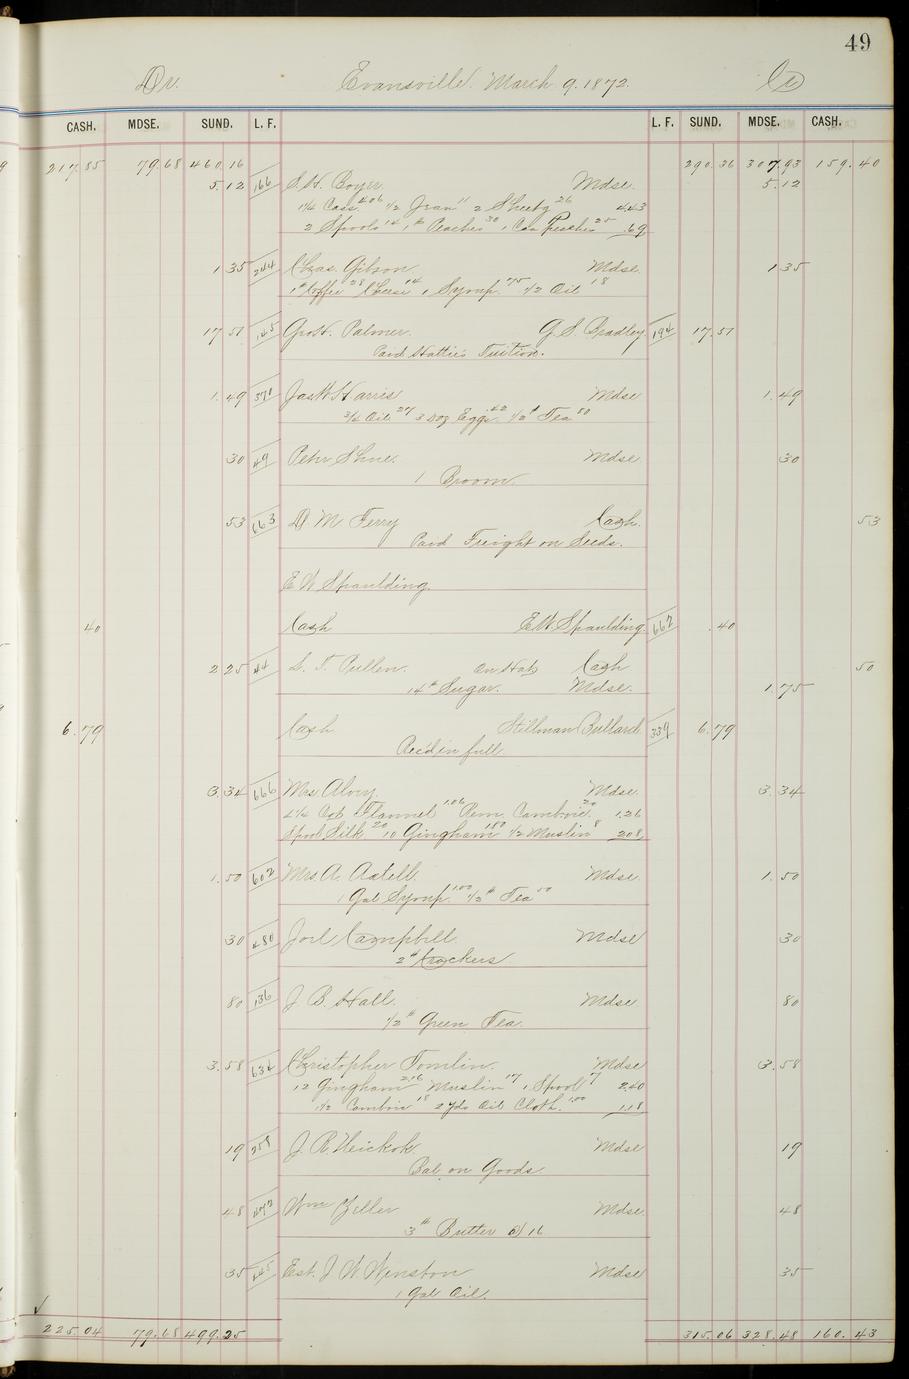 49
Dr. Evansville. March 9. 1872. Cr
CASH. MDSE. SUND. L. F. L. F. SUND. MDSE. CASH.
217.85 79.68 460.16 290.36 307.93 159.40
5.12 166 S. H. Boyer. Mdse. 5.12
1¼ Cass. 4.06 ½ Jean 11 2 Sheetg 26 4.43
2 Spools 14 1# Peaches 30 1 Can Peaches 25 .69
1 35 244 Chas. Gibson. Mdse. 1 35
1# Coffee 28 Cheese 14 1 Syrup. 75 ½ Oil 18
17.51 145 Palmer. G. S. Bradley. 194 17.51
Paid Hatties Tuition.
1.49 371 Jas W Harris Mdse 1.49
¾ Oil 27 3 Doz Eggs 42 ½# Tea 80
30 49 Peter Mdse 30
1 Broom
53 663 D. M Ferry Cash. 53
Paid Freight on Seeds.
E W Spaulding.
40 Cash E W. Spaulding. 662 .40
2 25 44 S. T. Pullen. Cash 50
14# Sugar. Mdse. 1.75
6.79 Cash Stillman Bullard 339 6.79
Rec'd in full.
3.34 666 Mrs. Alvey. Mdse. 3.34
Flannel 1.06 Rem. Cambric. 20 1.26
Spool Silk 20 10 Gingham 1.80 ½ Muslin 8 2.08
1.50 602 Mrs. A. Axtell. Mdse. 1.50
1 Gal Syrup. 1.00 ½# Tea 50
30 480 Joel Campbell. Mdse 30
2# Crackers
80 136 J B. Hall. Mdse. 80
½# Green Tea.
3.58 634 Christopher Tomlin. Mdse 3.58
12 Gingham 2.16 Muslin 17 1 Spool 7 2.40
1½ Cambric 18 2 yds Oil Cloth. 1.00 1.18
19 258 J. R. Heickok. Mdse 19
Bal on Goods.
48 473 Wm Zeller Mdse 48
3# Butter @ 16
35 445 Est. J W Winston Mdse 35
1 Gal Oil.
225.04 79.68 499.25 315.06 328.48 160.43